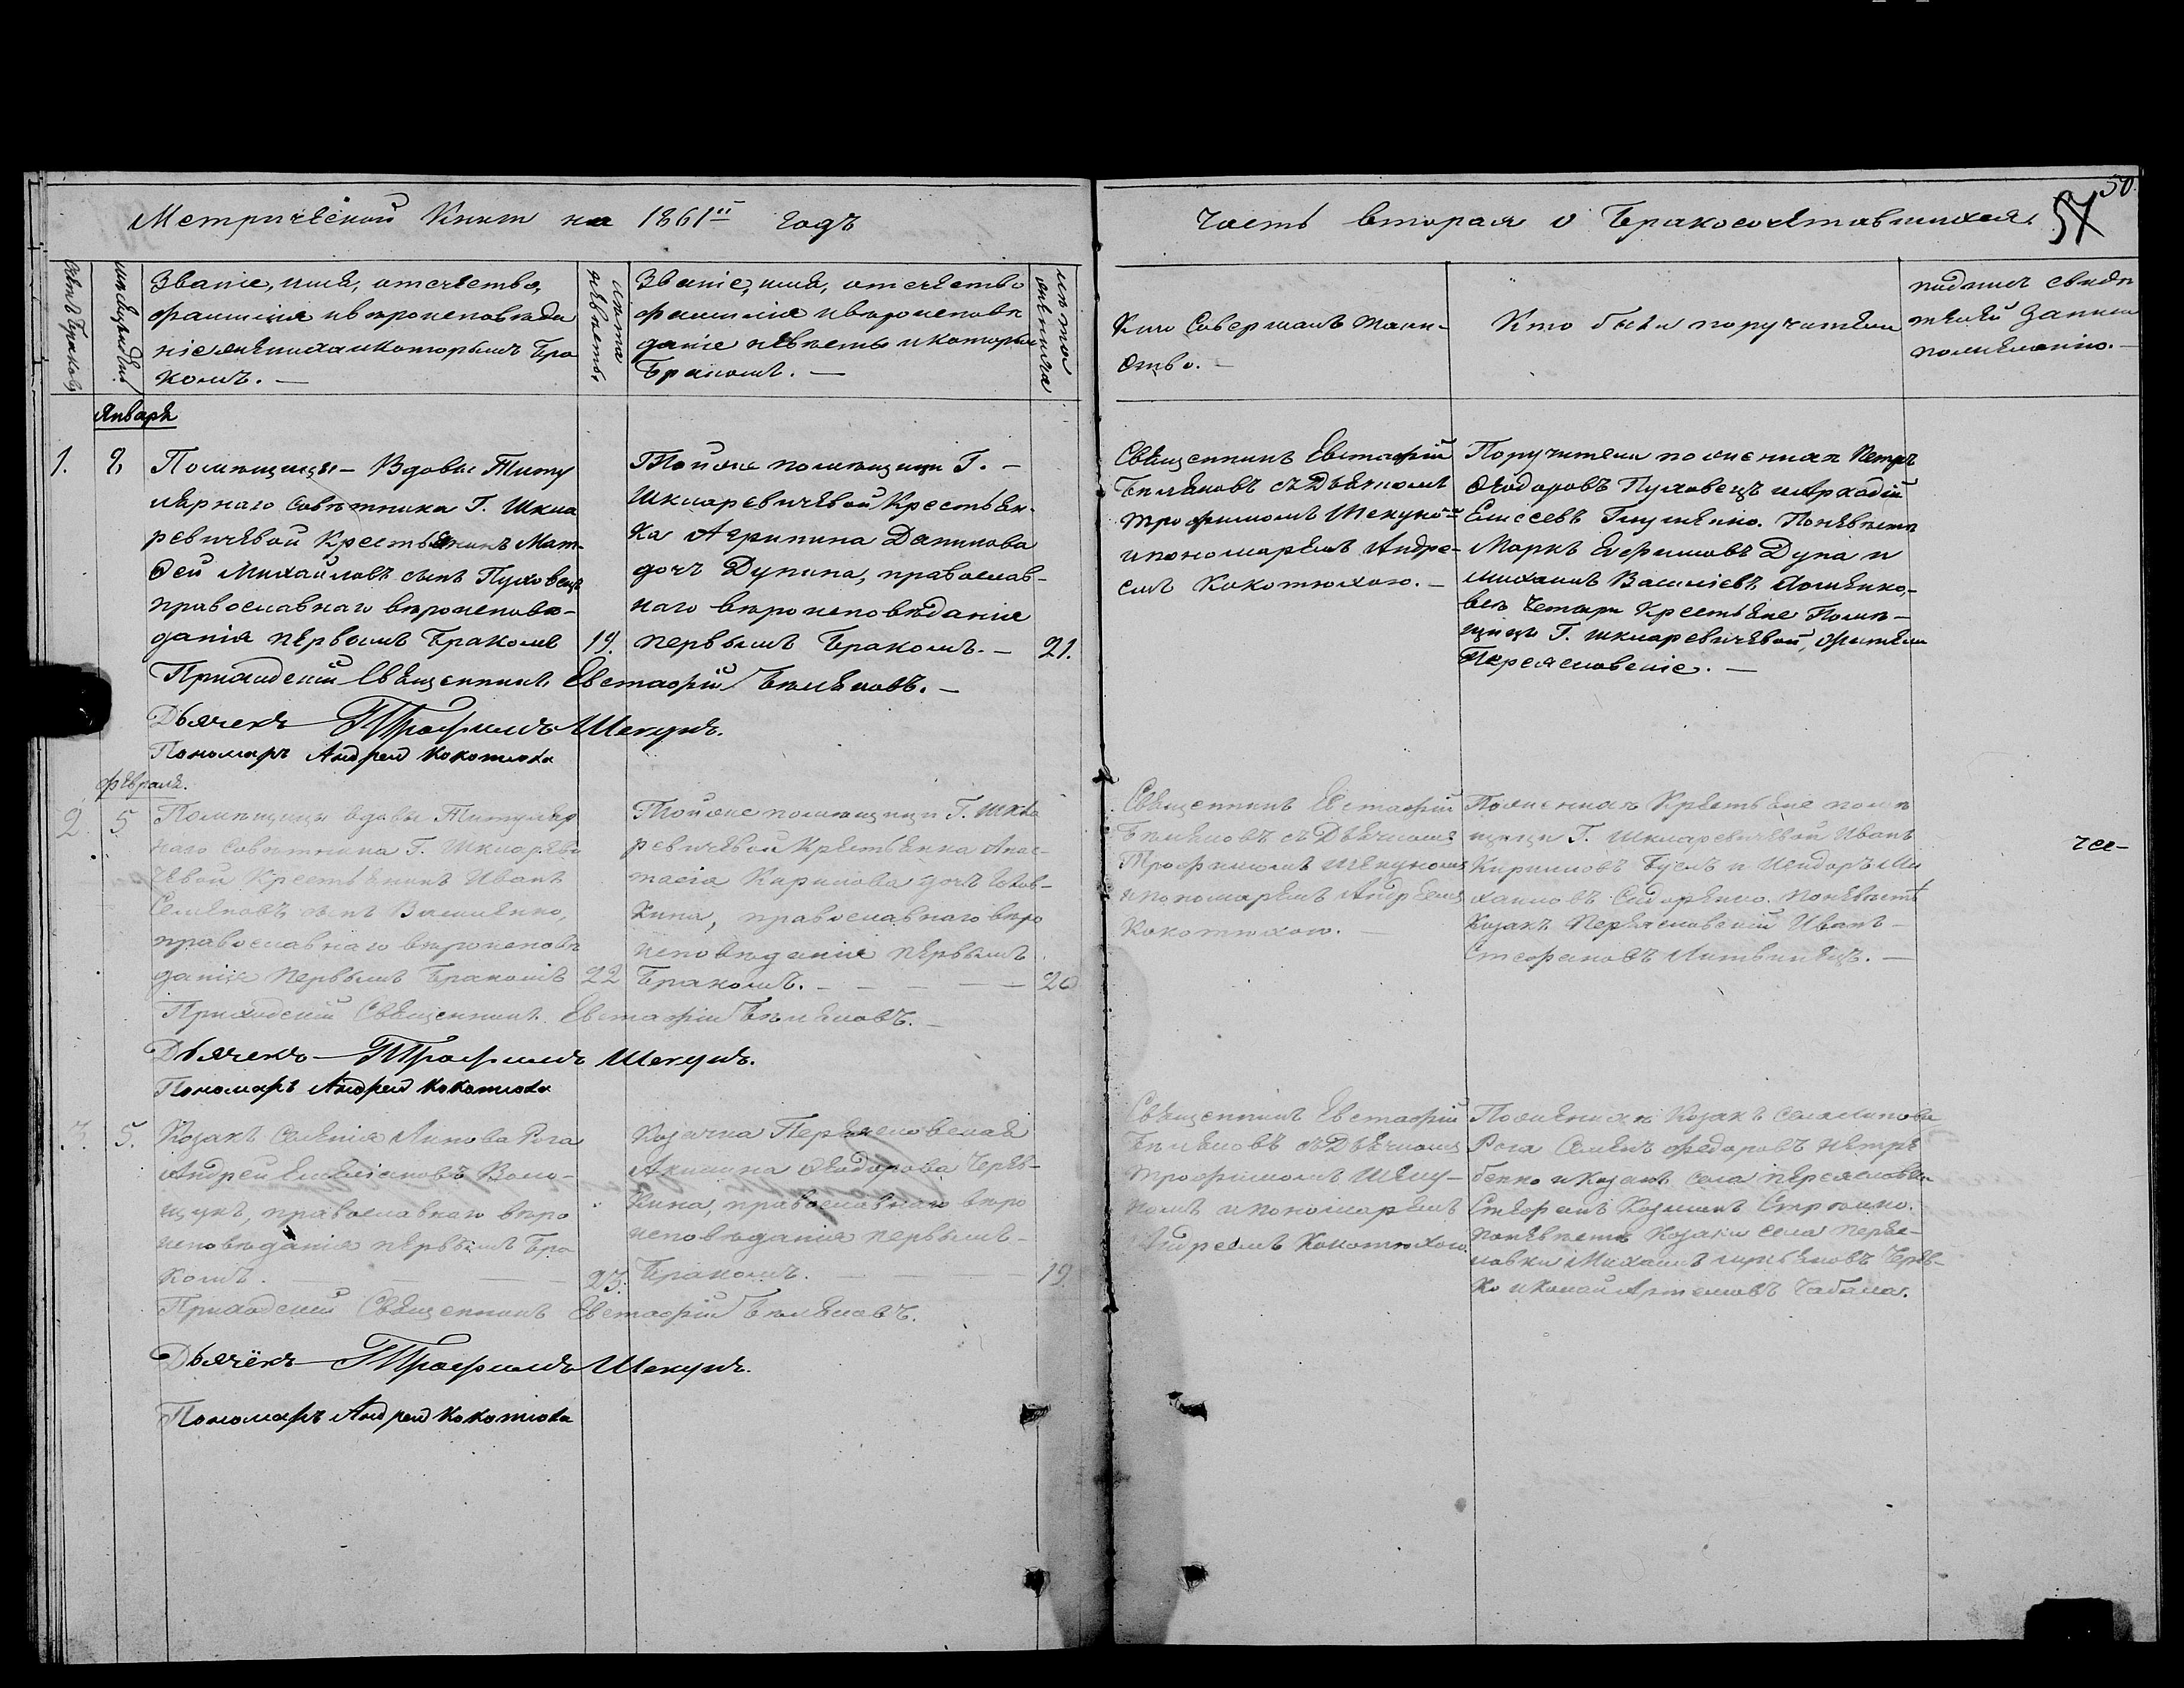 Метрической Книги на 1861й годъ
Часть вторая о Бракосочетавшихся.
50.
57
Счетъ Браковъ
Мѣсяцъ и День
Званіе, имя, отчество,
фамилія и вѣроисповѣда
ніе жениха и которымъ Бра
комъ. —
лѣта
невѣсты
Званіе, имя, отчество
фамилія и вѣроисповѣ
даніе невѣсты и которы
Бракомъ. —
лѣта
жениха
Кто Совершалъ таин-
ство. —
Кто были поручители
записи
по желанію. —
Январь
1.
8,
Помѣщицы — Вдовы Титу
лярнаго Совѣтника Г. Шкля
ревичевой Крестьянинъ Мат-
фей Михайловъ сынъ Пуховецъ
православнаго вѣроисповѣ-
данія первымъ Бракомъ
19.
Тойже помѣщицы Г. —
Шкляревичевой Крестьян-
ка Агрипина Данилова
дочь Дупина, православ-
наго вѣроисповѣданія
первымъ Бракомъ. —
21.
Священникъ Евстафій
Бѣляковъ съ Дьячкомъ
Трофимомъ Шекуно
и пономаремъ Андре-
емъ Кокотюхою. —
Поручители по женихѣ Петръ
Ѳеодоровъ Пуховецъ и Аркадій
Елисеевъ Глушенко. По невѣстѣ
Маркъ Ефимовъ Дупа и
Михаилъ Василіевъ
всѣ четыри Крестьяне Помѣ-
щицы Г. Шкляревичевой, жители
Переясловскіе. —
Приходскій Священникъ Евстафій Бѣляковъ. —
Дьячекъ Трофимъ Шекунъ.
Пономарь Андрей Кокотюха
Февраля.
2.
5
Помѣщицы вдовы Титуляр
наго Совѣтника Г. Шкляреви
чевой Крестьянинъ Иванъ
Семеновъ сынъ Василенко,
православнаго вѣроисповѣ
данія первымъ Бракомъ
22
Тойже помѣщицы Г. Шкля
ревичевой Крестьянка Анас-
тасія Кирилова дочь
кина, православнаго вѣро
исповѣданія первымъ
Бракомъ. —
20
Священникъ Евстафій
Бѣляковъ съ Дьячкомъ
Трофимомъ Шекуномъ
и пономаремъ Андреемъ
Кокотюхою. —
По женихѣ Крестьяне помѣ
щицы Г. Шкляревичевой Иванъ
Кириловъ и Исидоръ Ми
хаиловъ Сидоренко. По невѣстѣ
Козакъ Переясловскій Иванъ
Стефановъ Литвинецъ. —
Приходскій Священникъ Евстафій Бѣляковъ. —
Дьячекъ Трофимъ Шекунъ.
Пономарь Андрей Кокотюха
3.
5.
Козакъ Селенія Липова Рога
Андрей Емеліановъ Воло-
щукъ, православнаго вѣро
исповѣданія первымъ Бра
комъ.
23.
Козачка Переясловская
Акилина Ѳеодорова Черев-
кина, православнаго вѣро
исповѣданія первымъ
Бракомъ.
19.
Священникъ Евстафій
Бѣляковъ съ Дьячкомъ
Трофимомъ Шеку-
номъ и пономаремъ
Андреемъ Кокотюхою.
По женихѣ Козакъ села Липова
Рога Семенъ Федоровъ
и Козакъ села Переясловки
Стефанъ Козминъ
По невѣстѣ Козаки села Перея-
ловки Михаилъ Черев-
ко и Артемовъ Чабала.
Приходскій Священникъ Евстафій Бѣляковъ.
Дьячекъ Трофимъ Шекунъ.
Пономарь Андрей Кокотюха